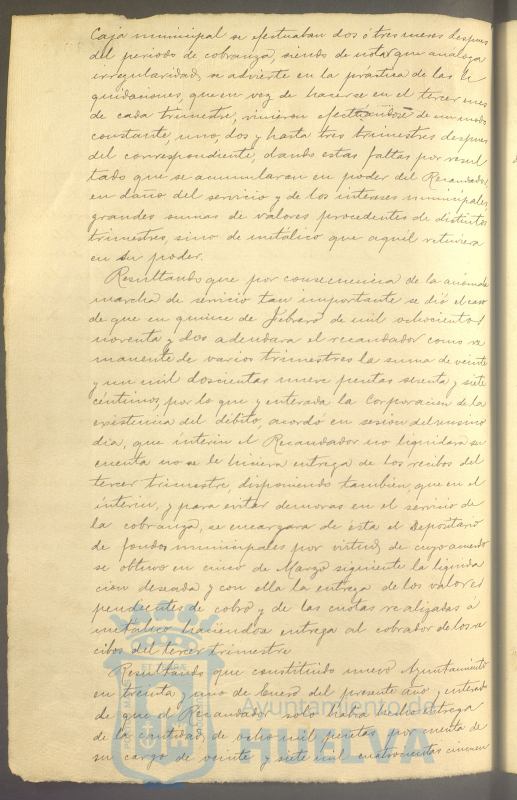 Caja municipal se efectuaban dos ó tres meses despues
del periodo de cobranza, siendo de notar que analoga
irregularidad, se advierte en la práctica de las li
quidaciones, que en vez de hacerse en el tercer mes
de cada trimestre, vinieron efectuándose de un modo
constante, uno, dos y hasta tres trimestres despues
del correspondiente, dando estas faltas por resul
tado que se acumularan en poder del Recaudador,
en daño del servicio y de los intereses municipales
grandes sumas de valores procedentes de distintos
trimestres, sino de metálico que aquel retuviera
en su poder.
Resultando que por consecuencia de la anómala
marcha de servicio tan importante se dió el caso
de que en quince de Febrero de mil ochocientos
noventa y dos adeudara el recaudador como re
manente de varios trimestres la suma de veinte
y un mil doscientas nueve pesetas setenta y siete
céntimos, por lo que y enterada la Corporacion de la
existencia del débito, acordó en sesion del mismo
dia, que interin el Recaudador no liquidára su
cuenta no se le hiciera entrega de los recibos del
tercer trimestre, disponiendo tambien, que en el
interin, y para evitar demoras en el servicio de
la cobranza, se encargara de ésta el Depositario
de fondos municipales por virtud de cuyo acuerdo
se obtuvo en cinco de Marzo siguiente la liquida
cion deseada y con ella la entrega de los valores
pendientes de cobro y de las cuotas realizadas á
metálico haciendose entrega al cobrador de los re
cibos del tercer trimestre
Resultando que constituido nuevo Ayuntamiento
en treinta y uno de Enero del presente año y enterado
de que el Recaudador solo habia hecho entrega
de la cantidad de ocho mil pesetas por cuenta de
su cargo de veinte y siete mil cuatrocientas cincuen
Ayuntamiento de
HUELVA